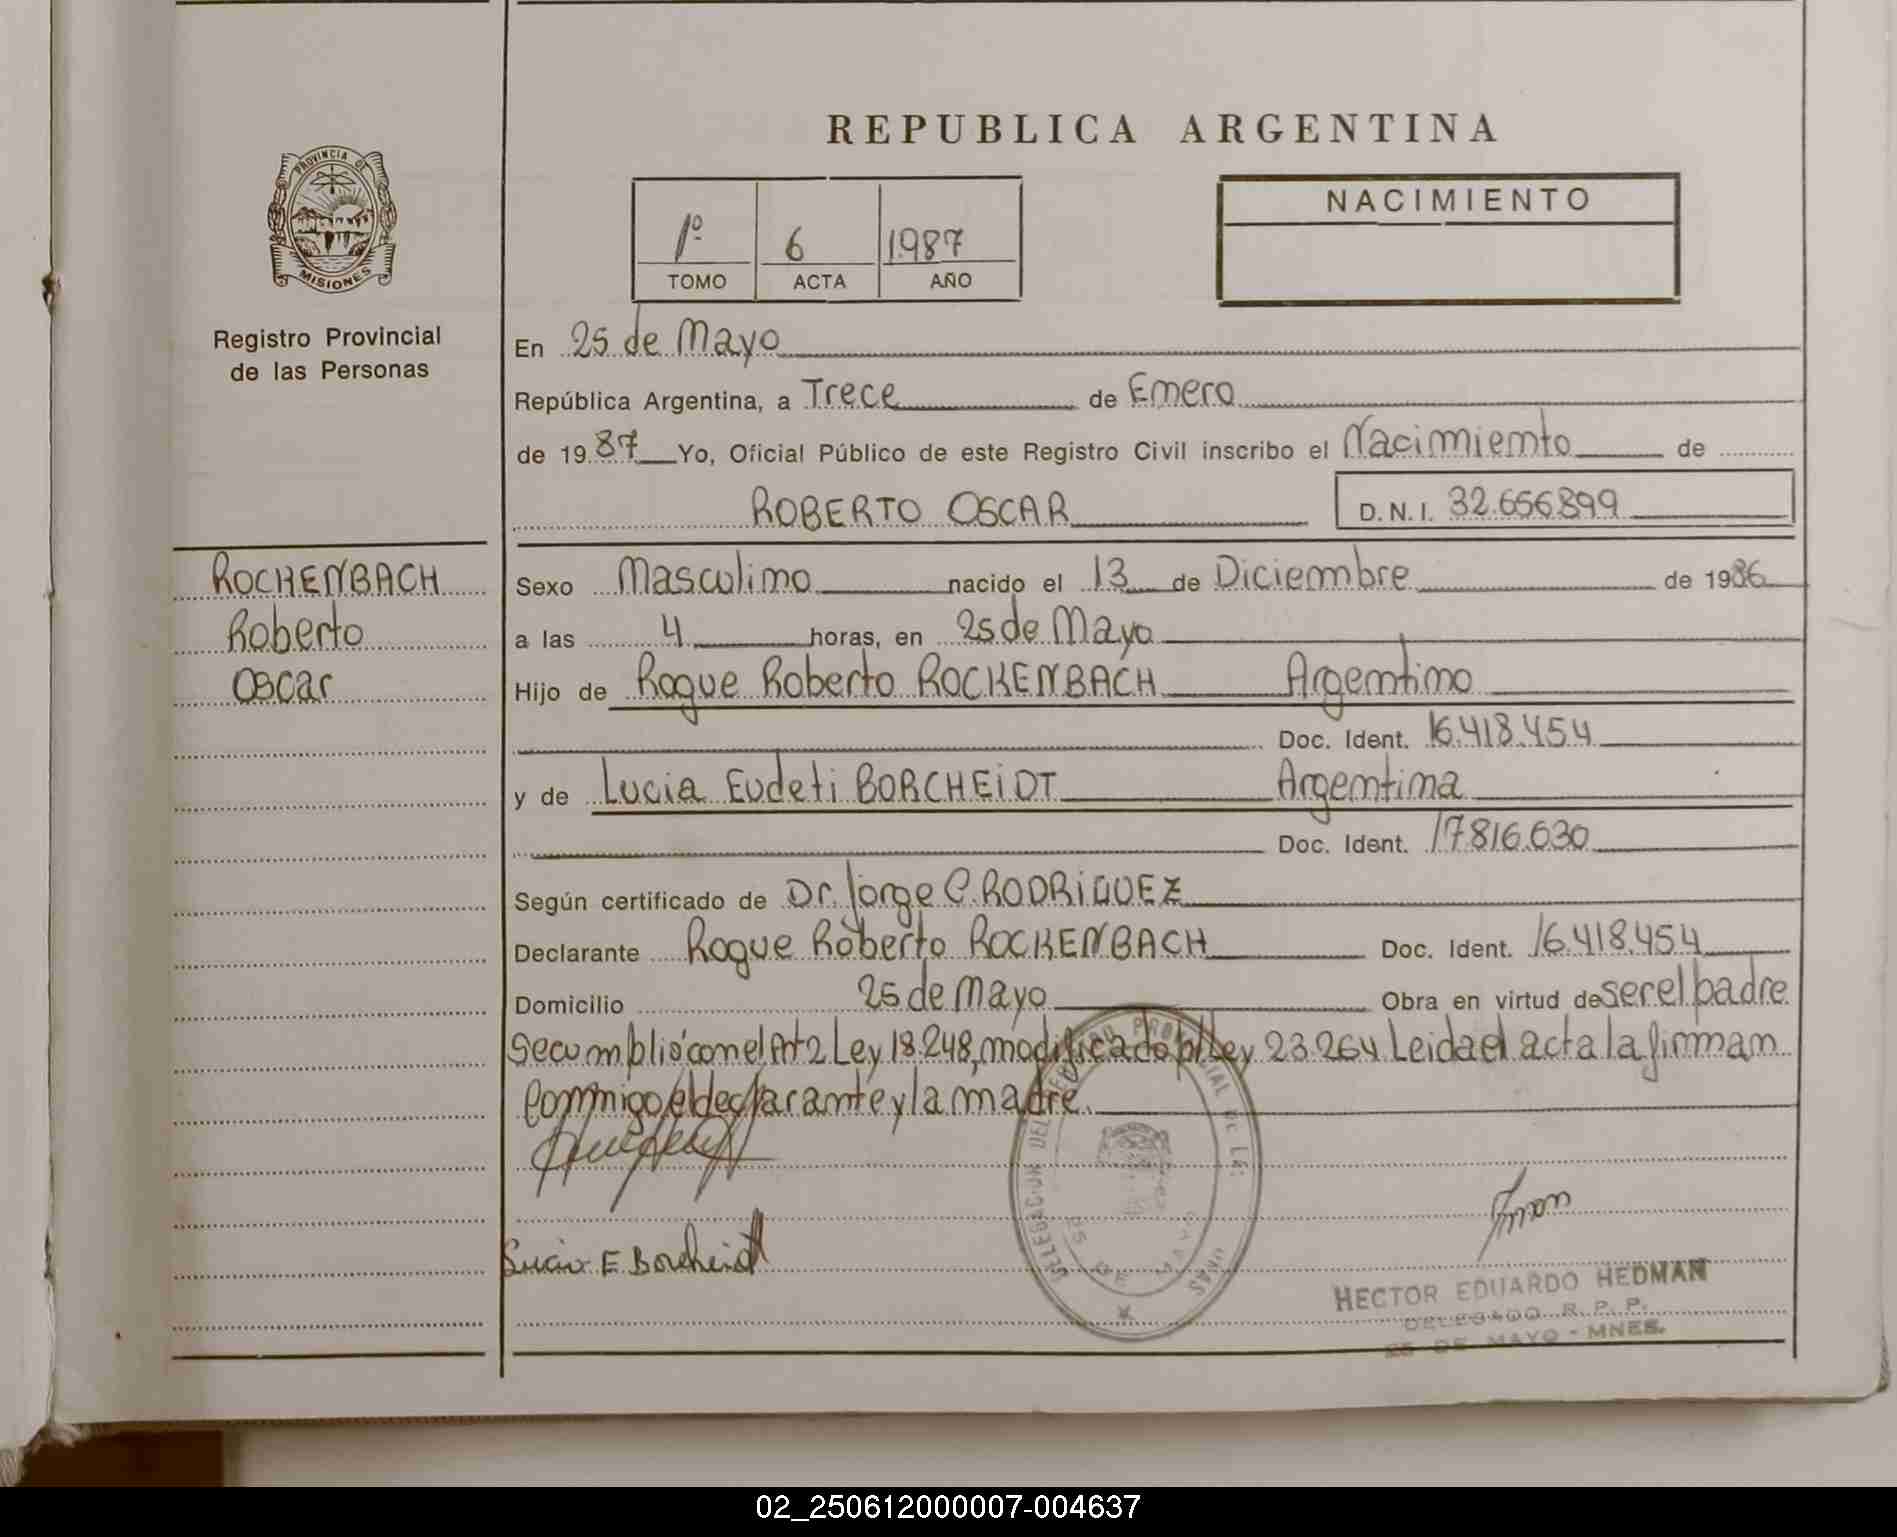 REPUBLICA ARGENTINA
PROVINCIA DE
MISIONES
Registro Provincial
de las Personas
1º 6 1987
TOMO ACTA AÑO
NACIMIENTO
En 25 de Mayo
República Argentina, a Trece de Enero
de 1987 Yo, Oficial Público de este Registro Civil inscribo el Nacimiento de
ROBERTO OSCAR D.N.I. 32.656.899
ROCKENBACH
Roberto
Oscar
Sexo Masculino nacido el 13 de Diciembre de 1986
a las 4 horas, en 25 de Mayo
Hijo de Roque Roberto ROCKENBACH Argentino
Doc. Ident. 16.418.454
y de Lucia Eudeti BORCHEIDT Argentina
Doc. Ident. 17816.630
Según certificado de Dr. Jorge C. RODRIGUEZ
Declarante Roque Roberto ROCKENBACH Doc. Ident. 16.418.454
Domicilio 25 de Mayo Obra en virtud de ser el padre
Se cumplió con el Art 2 Ley 18.248, modificado p/ Ley 23.264 Leida el acta la firman
conmigo el declarante y la madre.
Lucia E Borcheidt
HECTOR EDUARDO HEDMAN
DELEGADO R. P. P.
25 DE MAYO - MNES.
02_250612000007-004637